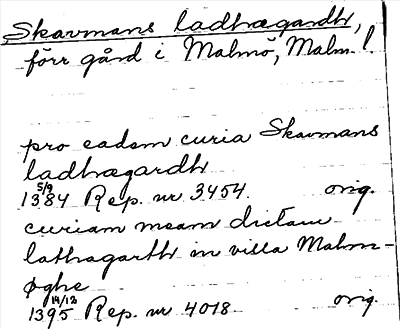 Skavmans ladhægardh,
förr gård i Malmö, Malm. l.
pro eadem curia Skavmans
ladhægardh
5/9
1384 Rep. nr 3454. orig.
curiam meam dictam
lathagarth in villa Malm-
øghe
14/12
1395 Rep. nr 4018 orig.